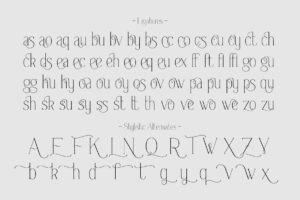 - Ligatures -
as ao aq au bu bv by bs cc co cs cu cy ct ch
ck ds ea ec ee eh eo eq eu ex ff fi fl ff go gu
gg hu ky oa ou oy os ov ow pa pu py ps qy
sh sk su sy ss st tt th vo ve wo we zo zu
- Stylistic Alternates -
A E F K L N Q R T W X Z Y
b k h d f f t g y q v w x